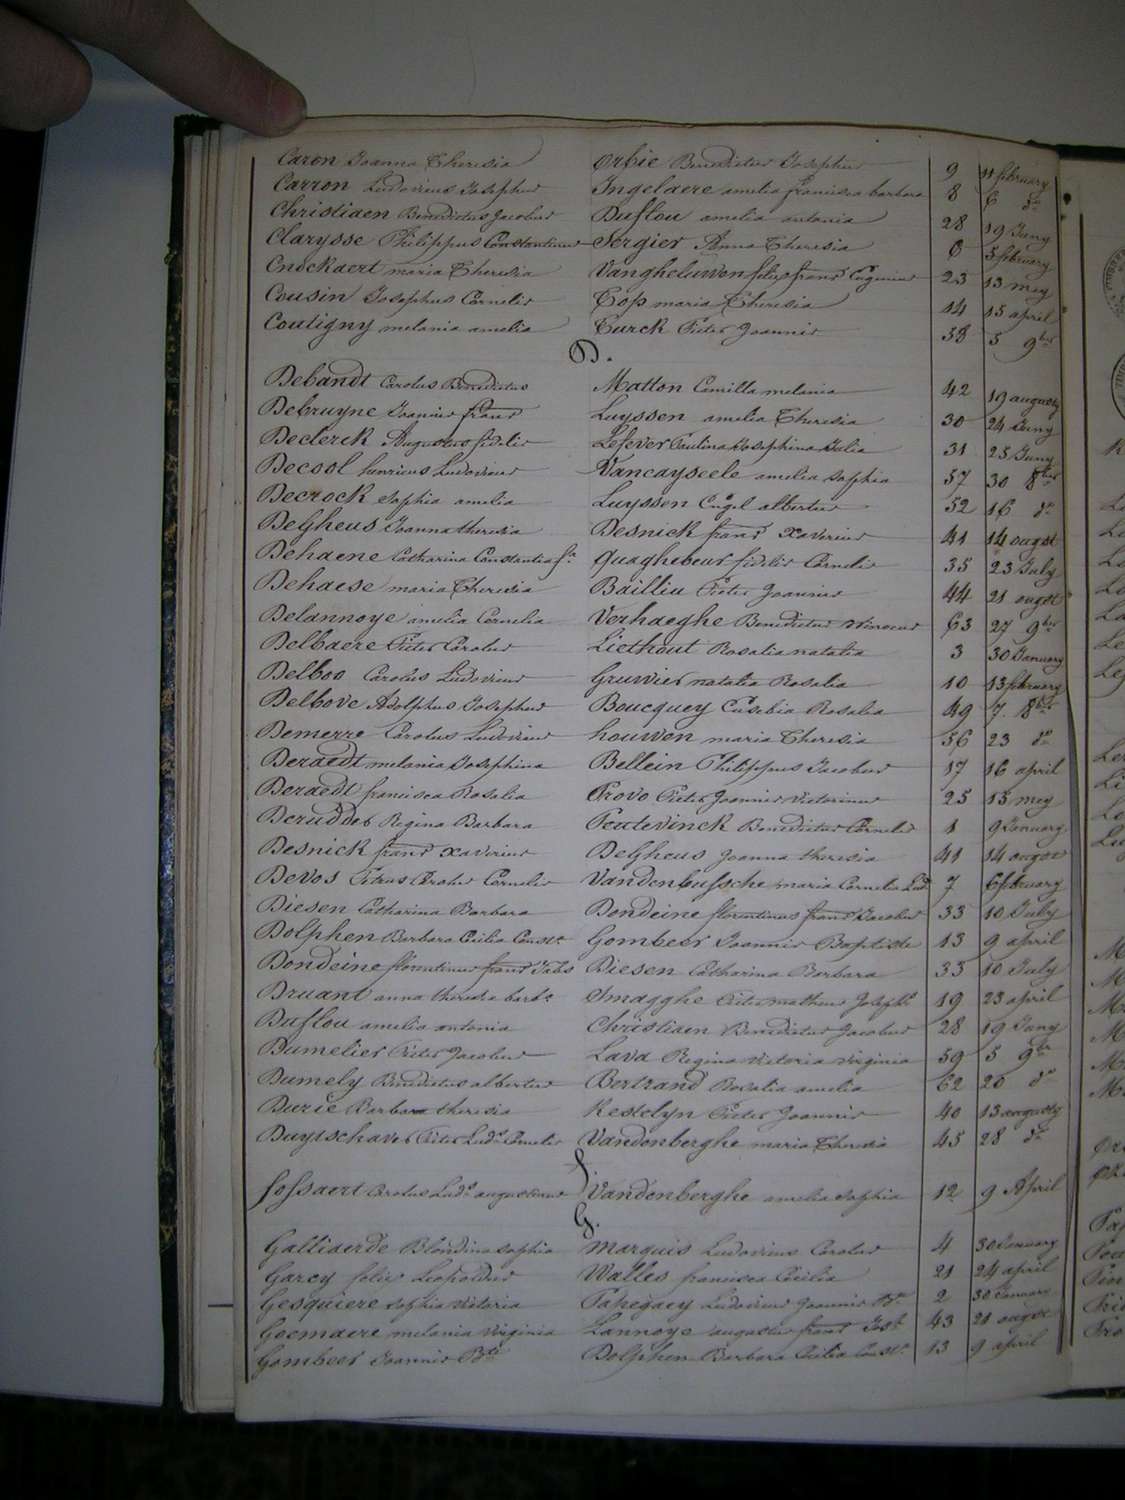 Caron Joanna Theresia Orbie Benedictus Josephus 9 11 february
Carron Ludovicus Josephus Ingelaere amelia francisca barbara 8 6 do
Christiaen Benedictus Jacobus Duflou amelia antonia 28 19 Juny
Clarysse Philippus Constantinus Sergier Anna Theresia 6 5 february
Cnockaert maria Theresia Vangheluwen felix frans Eugenius 23 13 mey
Cousin Josephus Cornelis Top maria Theresia 14 15 april
Coutigny melania amelia Turck Pieter Joannis 58 5 9ber
D.
Debandt Carolus Benedictus Matton Camilla melania 42 19 augusty
Debruyne Joannes frans Luyssen amelia Theresia 30 24 Juny
Declerck Augustus fidelis Lefever Paulina Josephina Julia 31 25 Juny
Decool henricus Ludovicus Vancayseele amelia sophia 57 30 8ber
Decrock sophia amelia Luyssen Engel albertus 52 16 do
Degheus Joanna theresia Desnick frans Xaverius 41 14 ougst
Dehaene Catharina Constantia fa. quaghebeur fidelis Cornelis 35 23 July
Dehaese maria Theresia Baillieu Pieter Joannes 44 21 ougst
Delannoye amelia Cornelia Verhaeghe Benedictus Winocus 63 27 9ber
Delbaere Pieter Carolus Liethout Rosalia natalia 3 30 January
Delboo Carolus Ludovicus Gruwier natalia Rosalia 10 13 february
Delbove Adolphus Josephus Boucquey Eusebia Rosalia 49 7. 8ber
Demerre Carolus Ludovicus houwen maria Theresia 56 23 do
Deraedt melania Josephina Bellein Philippus Jacobus 17 16 april
Deraedt francisca Rosalia Provo Pieter Joannes Victorinus 25 15 mey
Derudder Regina Barbara Peutevinck Benedictus Cornelis 1 9 January
Desnick frans Xaverius Degheus Joanna theresia 41 14 ougst
Devos Petrus Carolus Cornelis Vandenbussche maria Cornelia Lud. 7 6 february
Diesen Catharina Barbara Dondeine florentinus frans Jacobus 33 10 July
Dolphen Barbara Cecilia Consta. Gombeer Joannes Baptiste 13 9 april
Dondeine florentinus frans Jabs Diesen Catharina Barbara 33 10 July
Druant anna theresia barba. Smagghe Pieter matheus Josephs 19 23 april
Duflou amelia antonia Christiaen Benedictus Jacobus 28 19 Juny
Dumelier Pieter Jacobus Lava Regina Victoria virginia 59 5 9ber
Dumely Benedictus albertus Bertrand Rosalia amelia 62 20 do
Durie Barbara theresia Kestelyn Pieter Joannes 40 13 augusty
Duytschaver Pieter Ludo. Cornelis Vandenberghe maria Theresia 45 28 do
f
fossaert Carolus Ludo. augustinus Vandenberghe amelia sophia 12 9 April
G.
Galliaerde Blondina sophia marquis Ludovicus Carolus 4 30 January
Garcy felix Leopoldus Walles francisca Cecilia 21 24 april
Gesquiere sophia Victoria Pahegaey Ludovicus Joannes Bte 2 30 January
Goemaere melania virginia Lannoye augustus frans Josh 43 21 ougst
Gombeer Joannes Bte Dolphen Barbara Cecilia Consta. 13 9 april